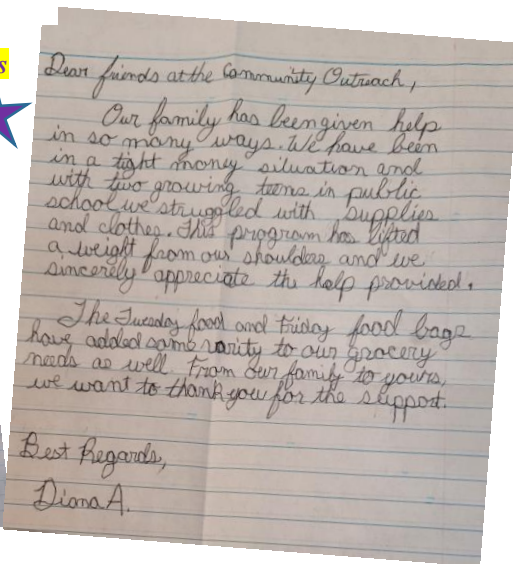 s
Dear friends at the Community Outreach,
Our family has been given help
in so many ways. We have been
in a tight money situation and
with two growing teens in public
school we struggled with supplies
and clothes. This program has lifted
a weight from our shoulders and we
sincerely appreciate the help provided.
The Tuesday food and Friday food bags
have added some varity to our grocery
needs as well. From our family to yours,
we want to thank you for the support.
Best Regards,
Diana A.